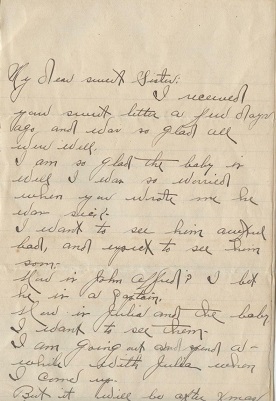 My dear sweet Sister:
I received
your sweet letter a few days
ago, and was so glad all
were well.
I am so glad the baby is
well I was so worried
when you wrote me he
was sick.
I want to see him awful
bad, and expect to see them
soon.
How is John Alfred? I bet
he is a Captain.
How is Julia and the baby
I want to see them.
I am going out and spend a-
while with Julia when
I come up.
But it will be after Xmas